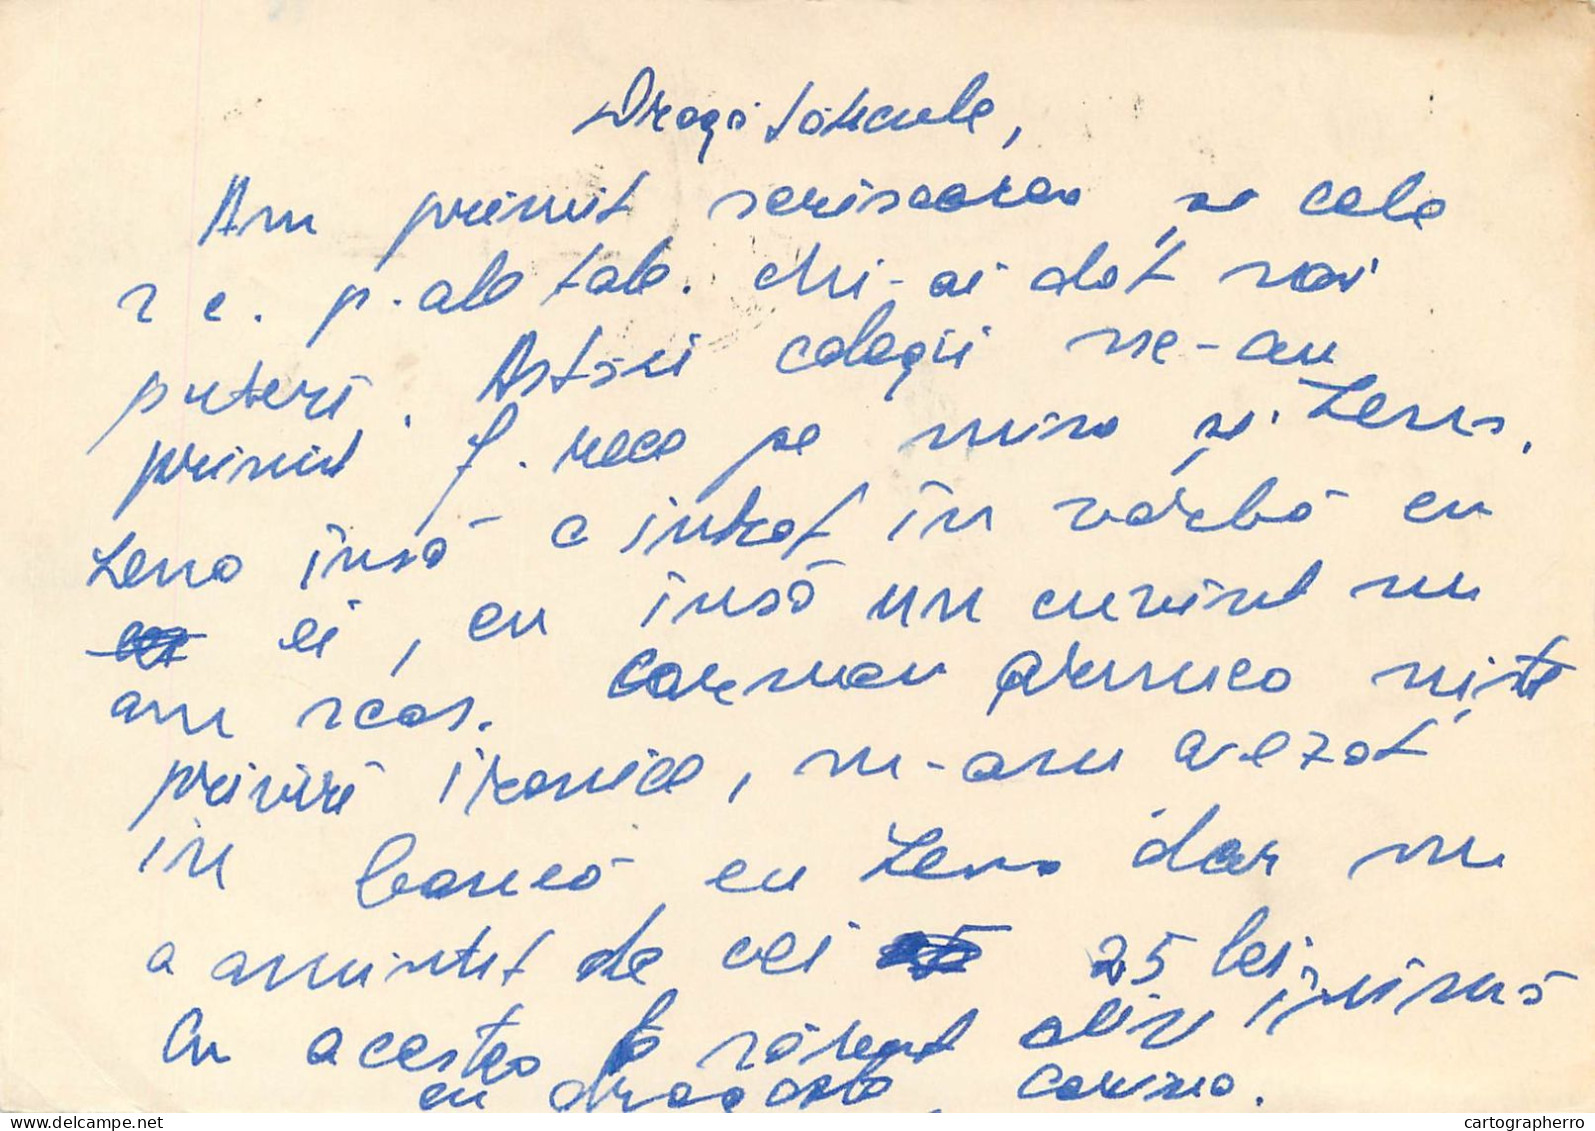 Dragă tăticule,
Am primit scrisoarea și cele
2 c. p. ale tale. Mi-ai dat noi
puteri. Astăzi colegii ne-au
primit f. rece pe mine și Lena.
Lena însă a intrat în vorbă cu
ei, eu însă un cuvînt nu
am scos. Carmen arunca niște
priviri ironice, m-am așezat
în bancă cu Lena dar nu
a amintit de cei 25 lei.
Cu acestea te sărut din inimă
cu dragoste, Corina.
cartographerro